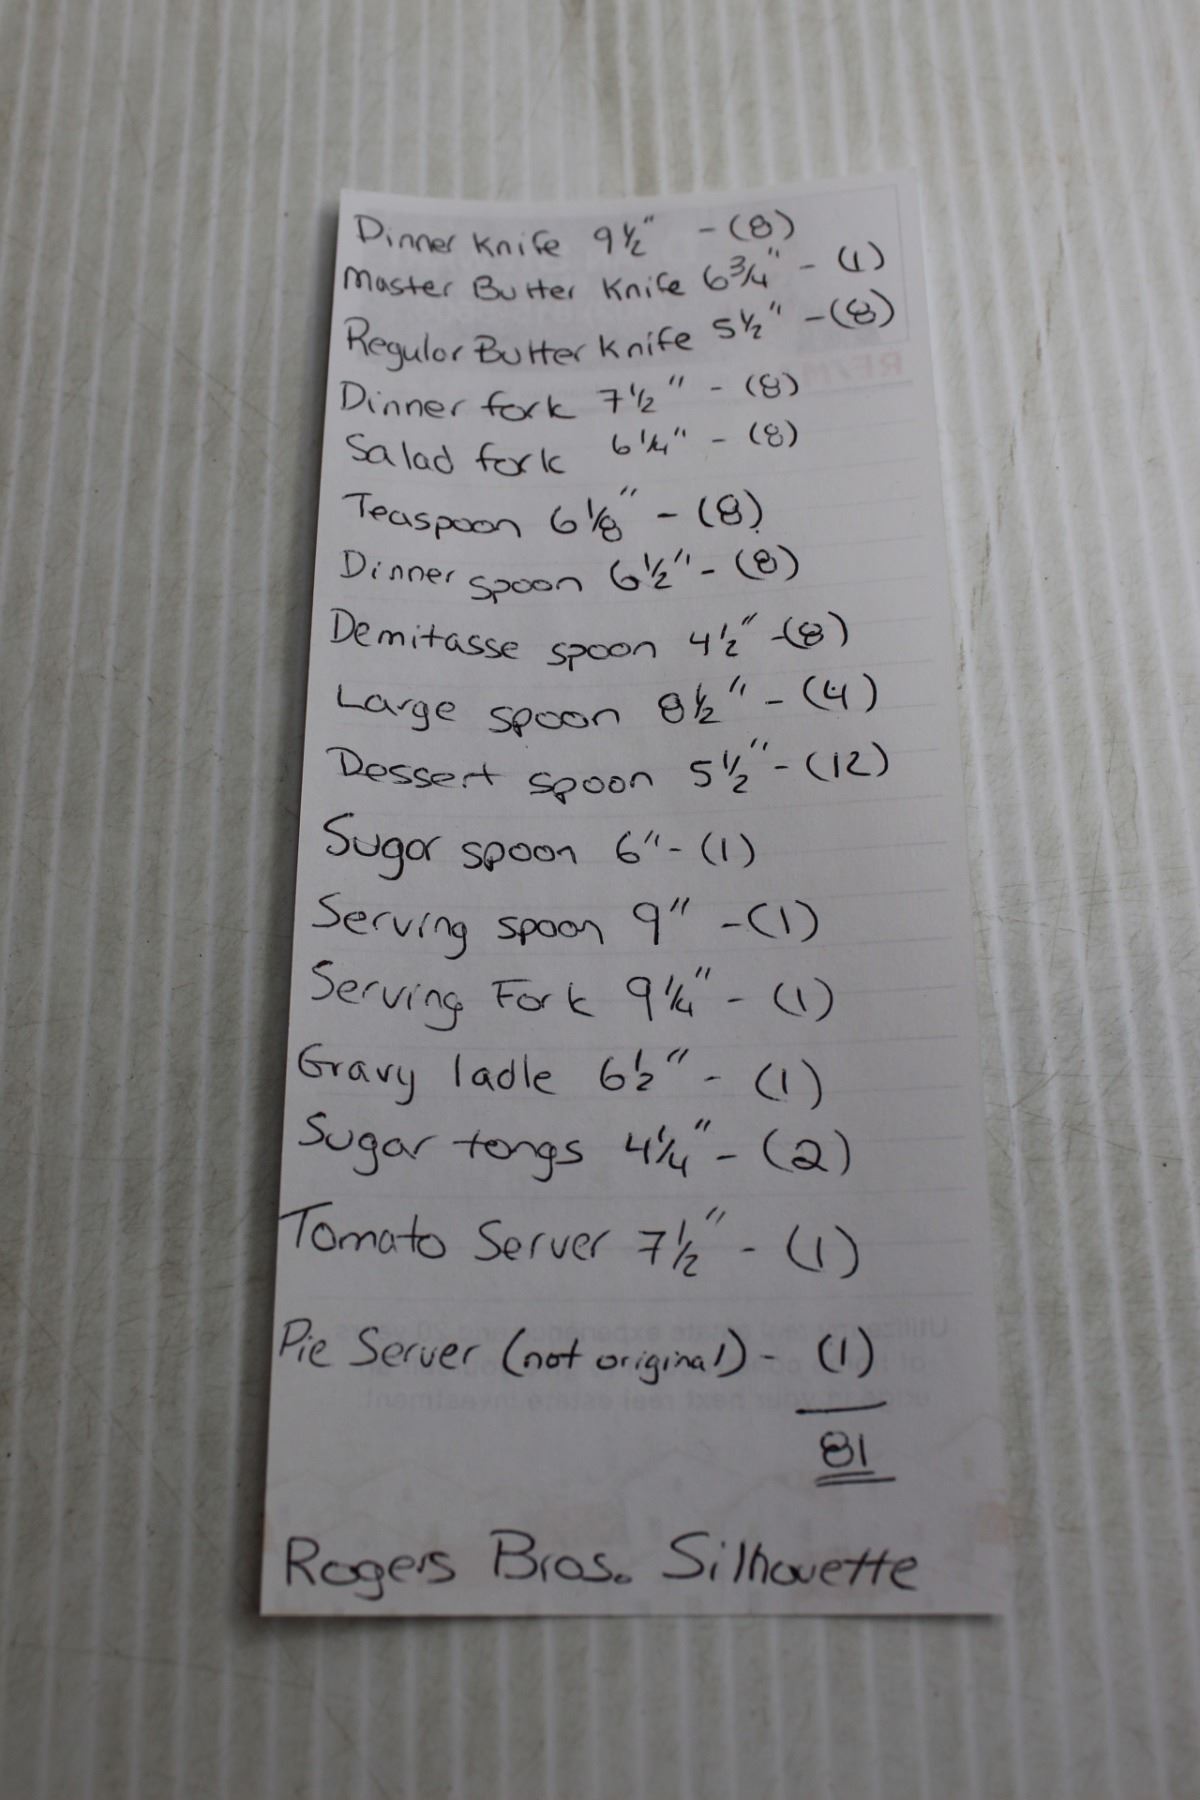 Dinner Knife 9 1/2" - (8)
Master Butter Knife 6 3/4" - (1)
Regular Butter Knife 5 1/2" - (8)
Dinner fork 7 1/2" - (8)
Salad fork 6 1/4" - (8)
Teaspoon 6 1/8" - (8)
Dinner spoon 6 1/2" - (8)
Demitasse spoon 4 1/2" - (8)
Large spoon 8 1/2" - (4)
Dessert spoon 5 1/2" - (12)
Sugar spoon 6" - (1)
Serving spoon 9" - (1)
Serving Fork 9 1/4" - (1)
Gravy ladle 6 1/2" - (1)
Sugar tongs 4 1/4" - (2)
Tomato Server 7 1/2" - (1)
Pie Server (not original) - (1)
81
Rogers Bros. Silhouette